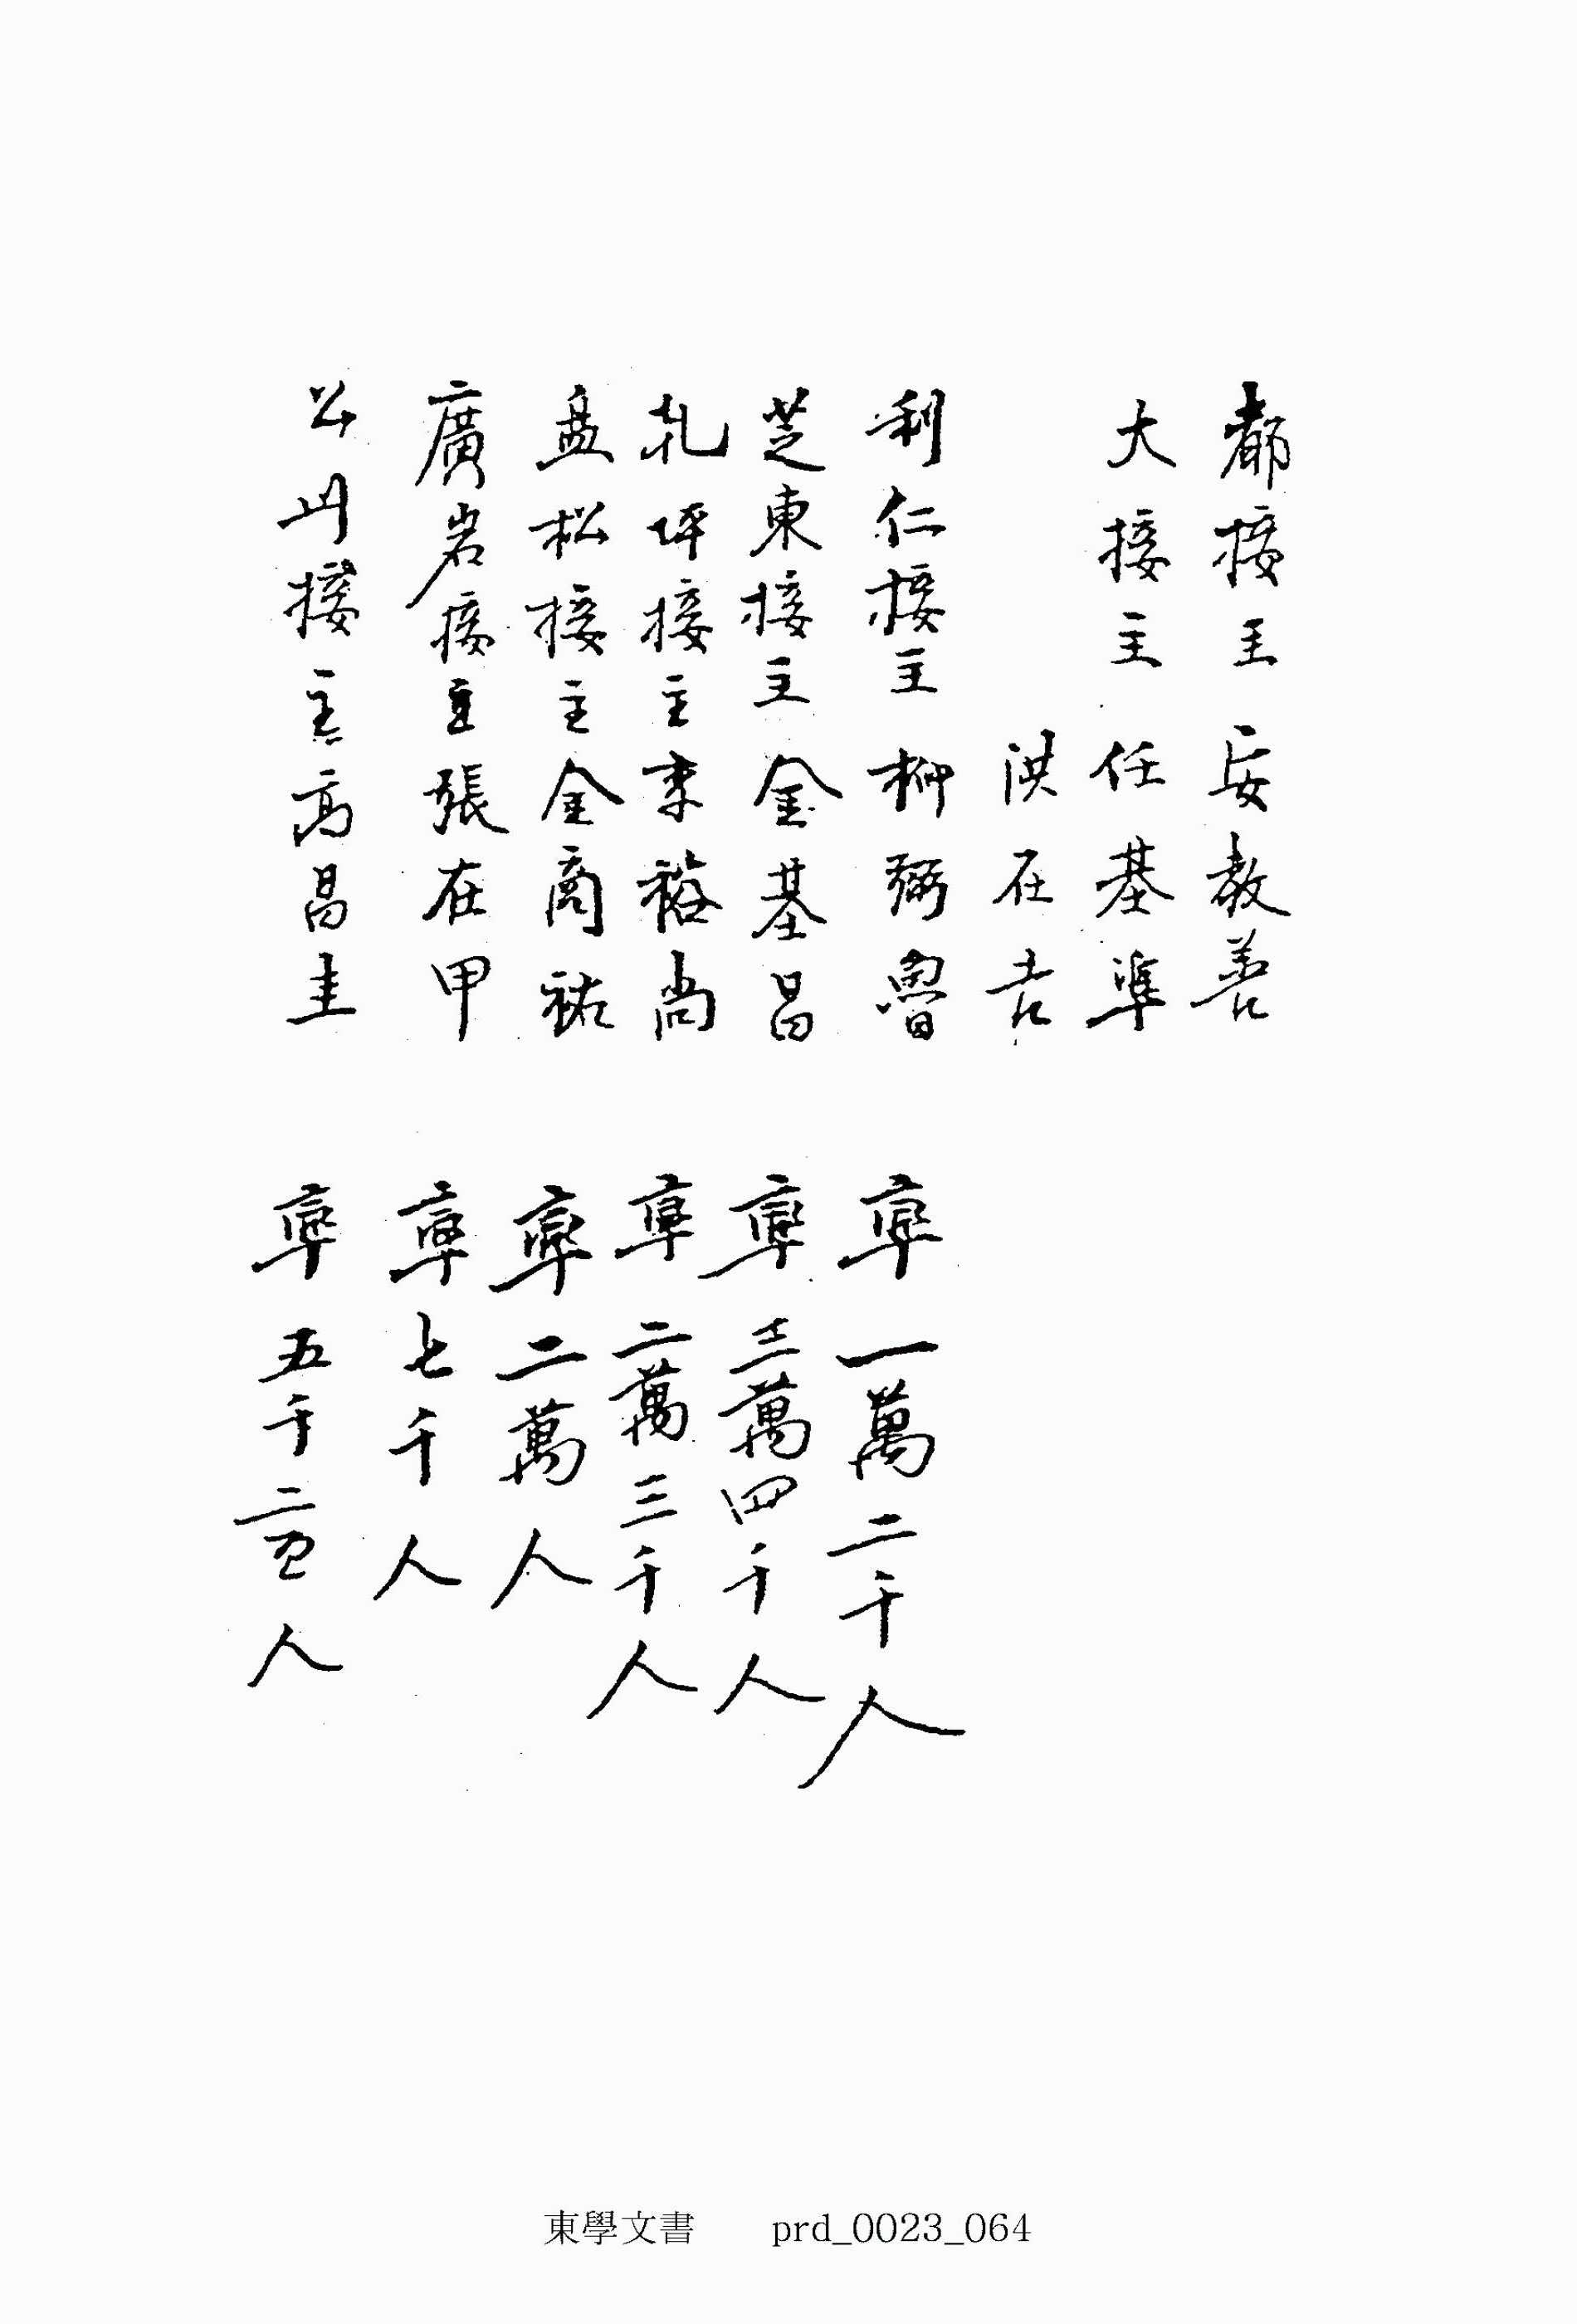 都接主 安教善
大接主 任基準
洪在吉
利仁接主 柳弼魯 率一萬二千人
芝東接主 金基昌 率三萬四千人
札坪接主 李裕尚 率二萬三千人
盈松接主 金商祐 率二萬人
廣岩接主 張在甲 率七千人
公州接主 高昌圭 率五千二百人
東學文書 prd_0023_064